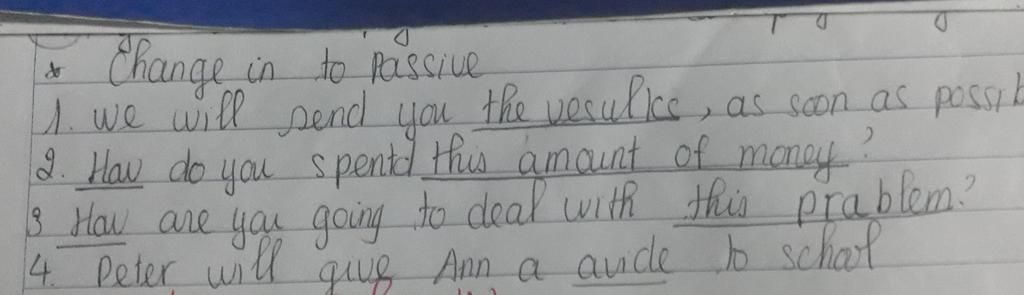 * Change in to passive
1. we will send you the results, as soon as possib
2. How do you spend this amount of money?
3 How are you going to deal with this prablem?
4. Peter will give Ann a avide to school